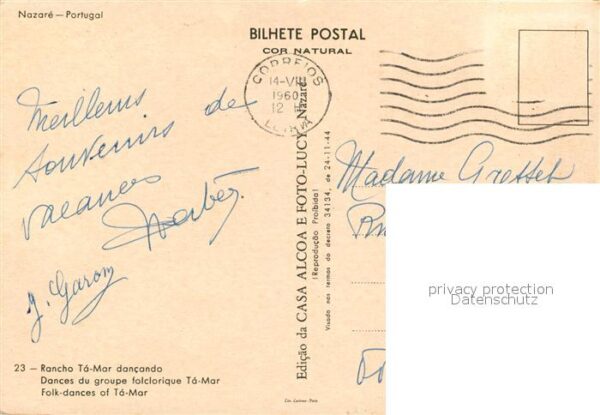 Nazaré — Portugal
BILHETE POSTAL
COR NATURAL
CORREIOS
14-VII
1960
12
Meilleurs
souvenirs de
vacances
J. Garom
Edição da CASA ALCOA E FOTO-LUCY, Nazaré
(Reprodução Proibida)
Visado nos termos do decreto 34134, de 24-11-44
Madame
privacy protection
Datenschutz
23 — Rancho Tá-Mar dançando
Dances du groupe folclorique Tá-Mar
Folk-dances of Tá-Mar